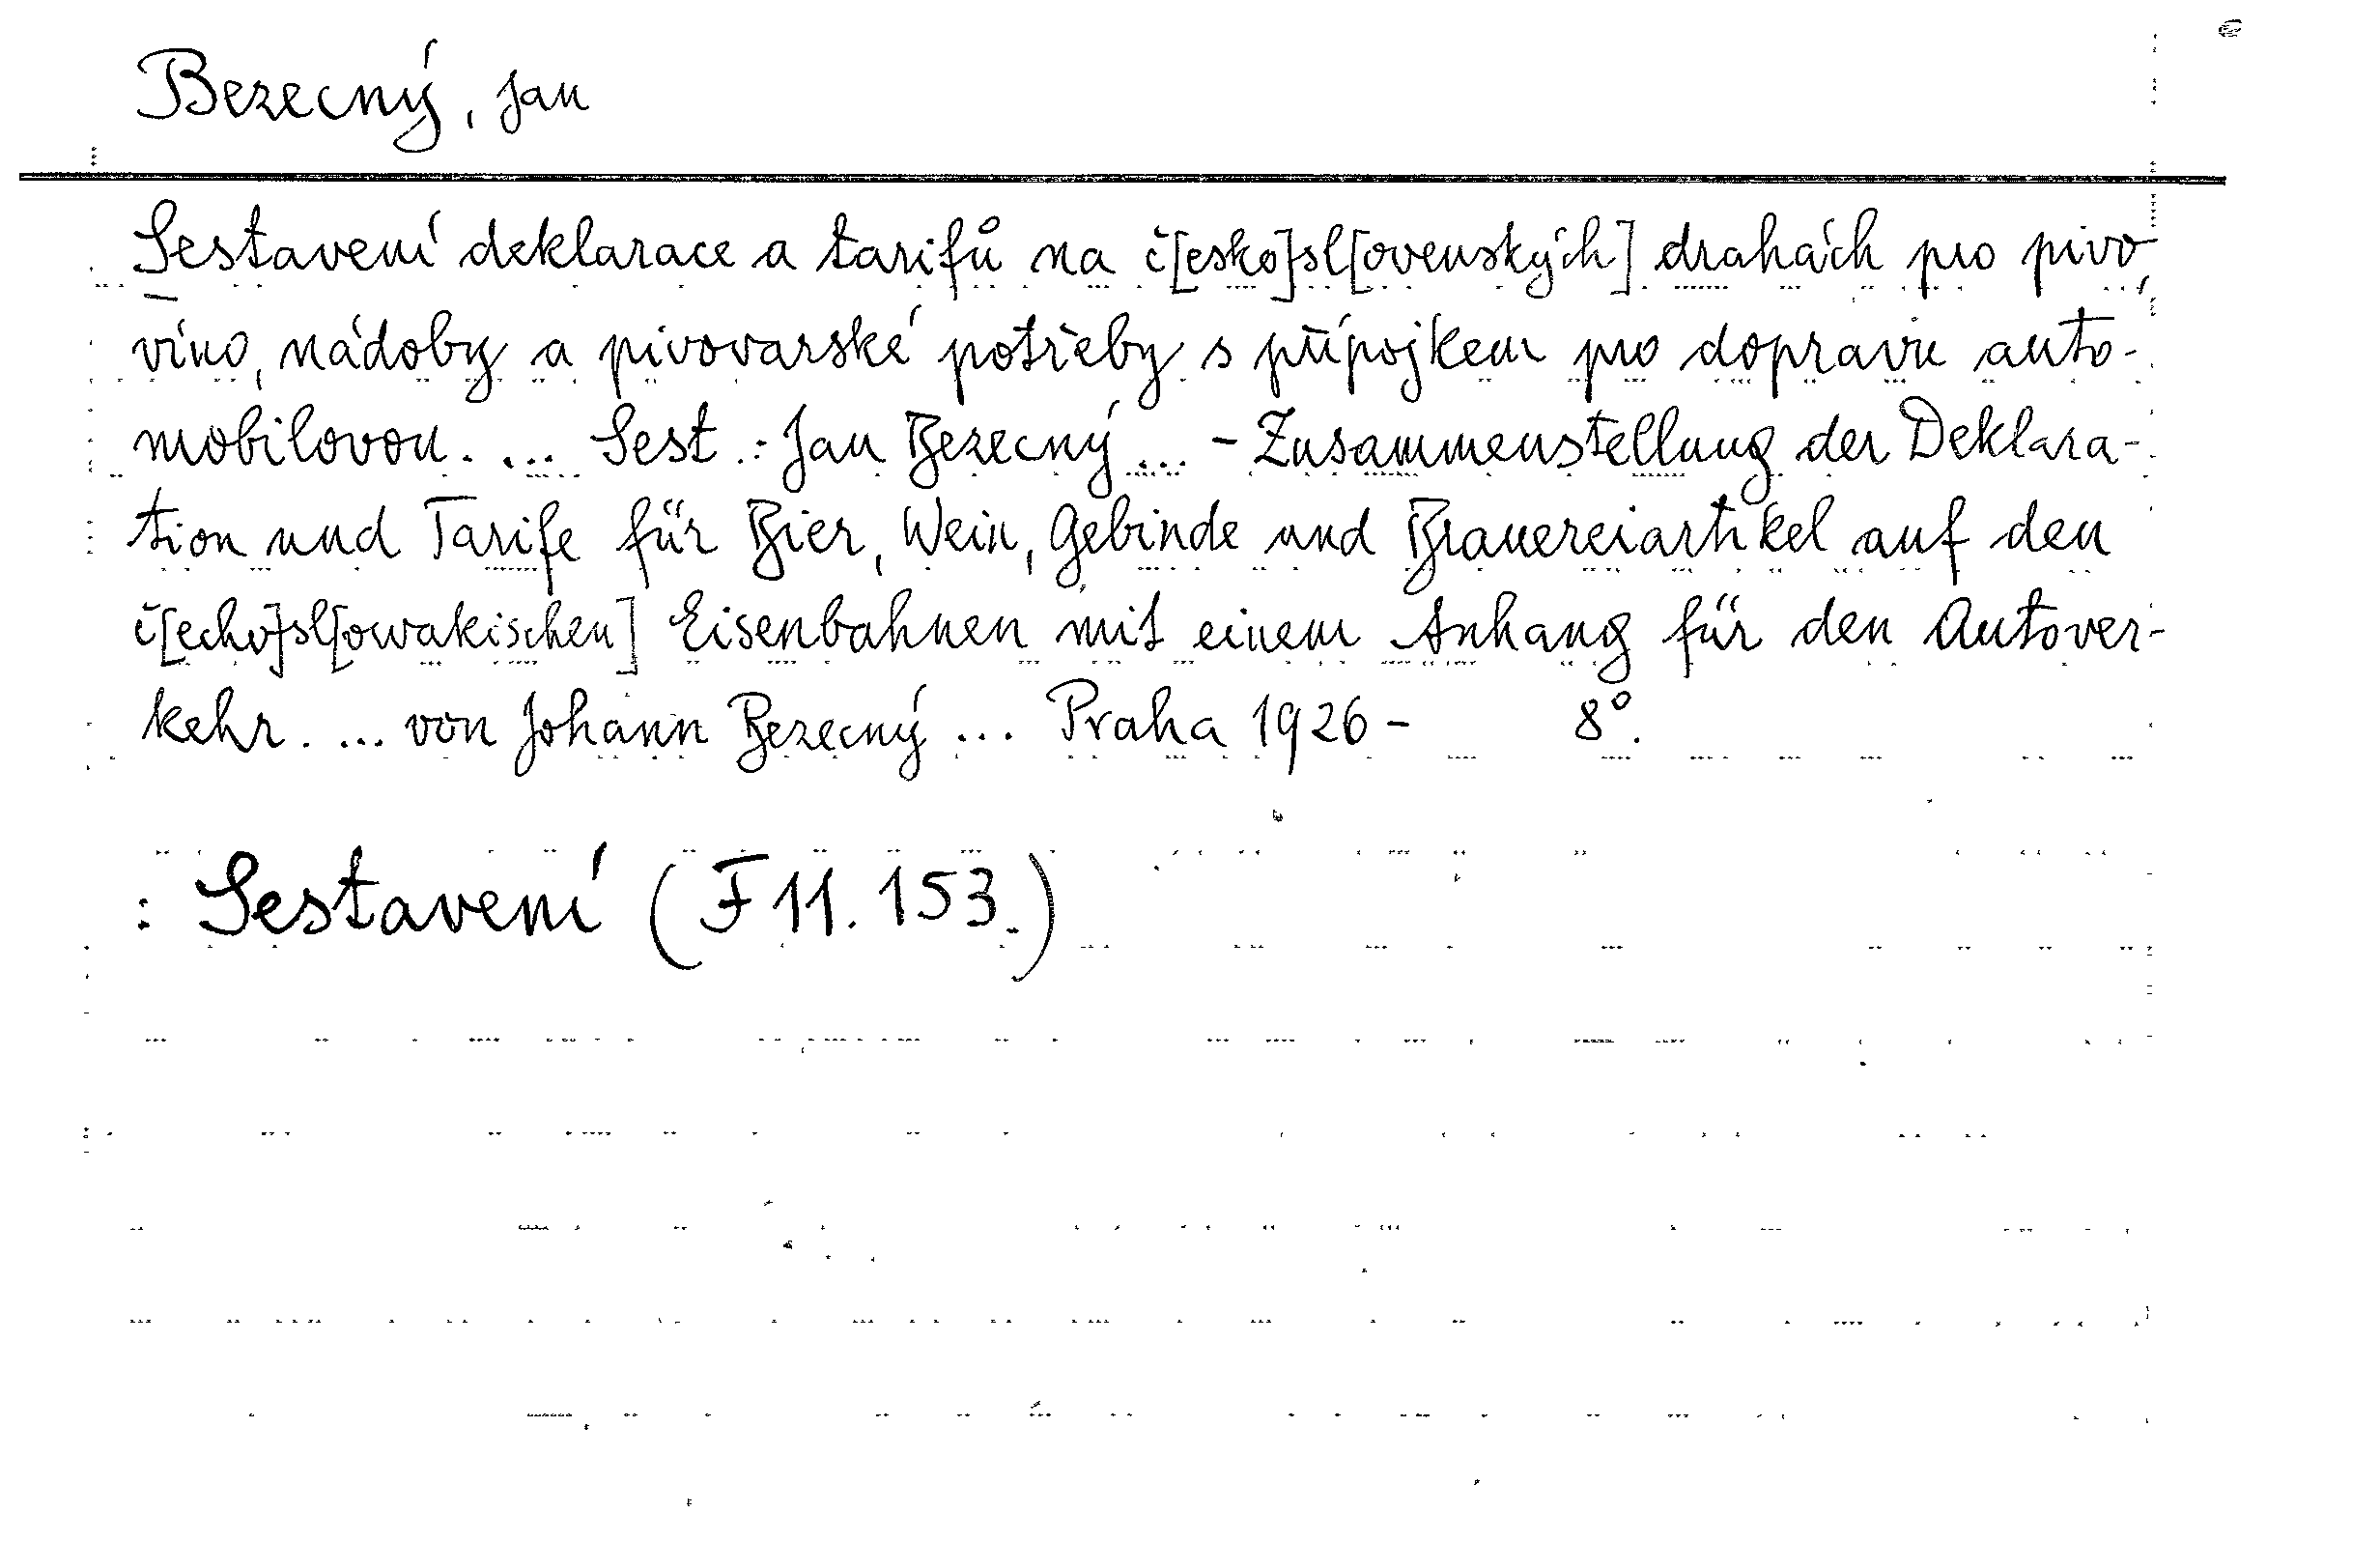 Bezecný, Jan
Sestavení deklarace a tarifů na č[esko]sl[ovenských] drahách pro pivo,
víno, nádoby a pivovarské potřeby s přípojkem pro dopravu auto-
mobilovou. ... Sest.: Jan Bezecný ... - Zusammenstellung der Deklara-
tion und Tarife für Bier, Wein, Gebinde und Brauereiartikel auf den
č[echo]sl[owakischen] Eisenbahnen mit einem Anhang für den Autover-
kehr. ... von Johann Bezecný ... Praha 1926 - 8°.
: Sestavení (F 11. 153.)